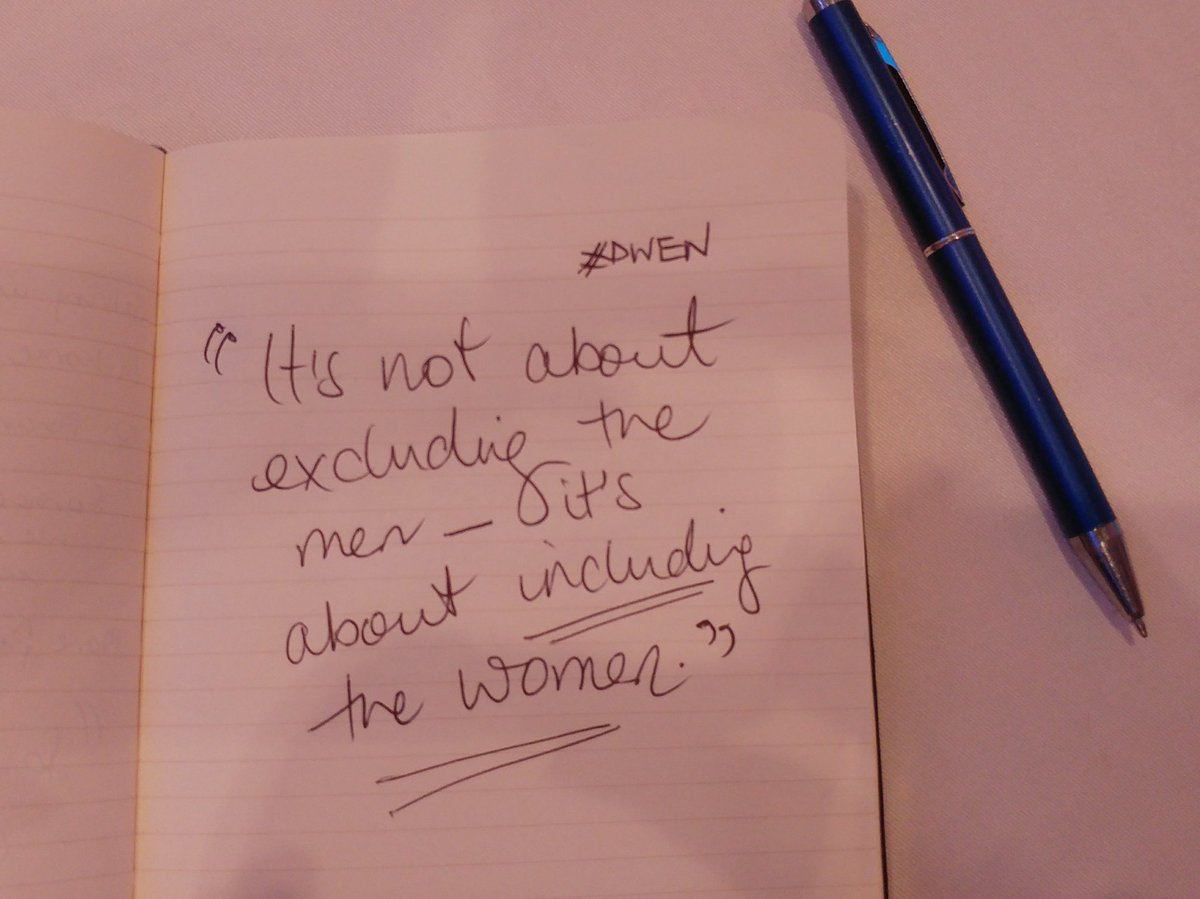 #DWEN
"It's not about
excluding the
men - it's
about including
the women."